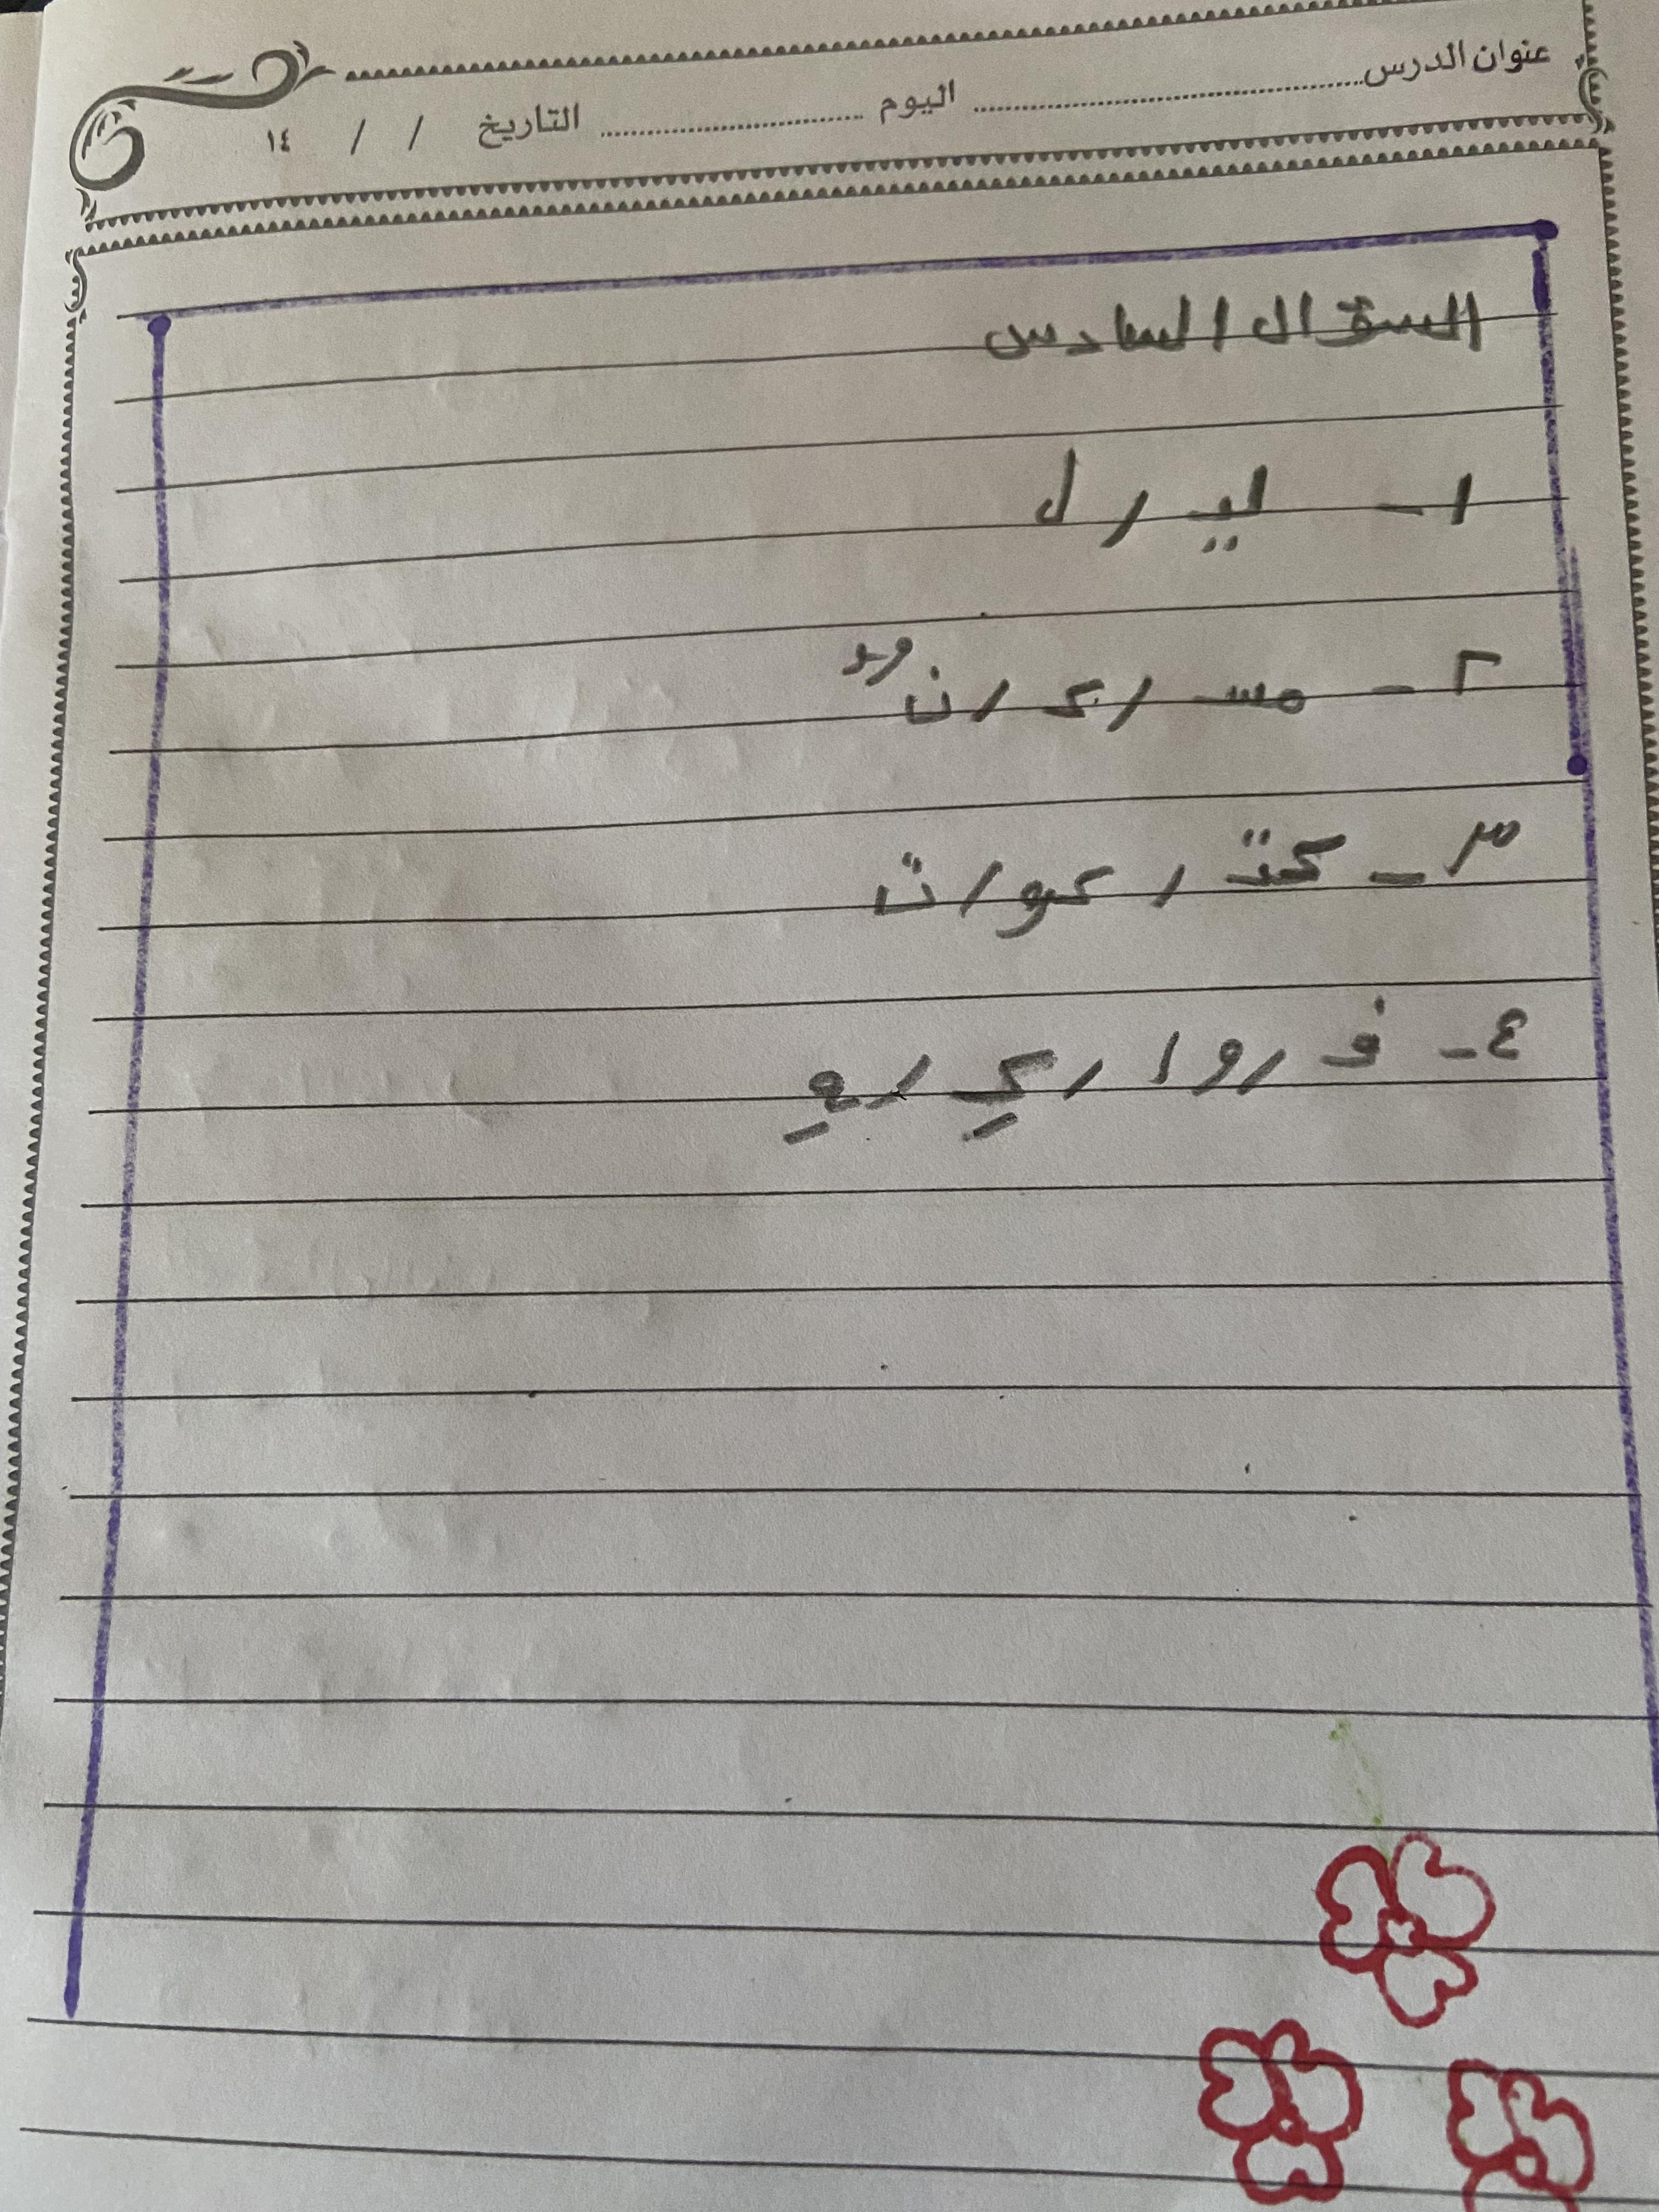 عنوان الدرس اليوم التاريخ / / ١٤
السؤال السادس
١- ليـ / ل
٢- مسـ / كـ / نٌ
٣- كتـ / كو / ت
٤- فـ / و / ا / كـِ / هِـ